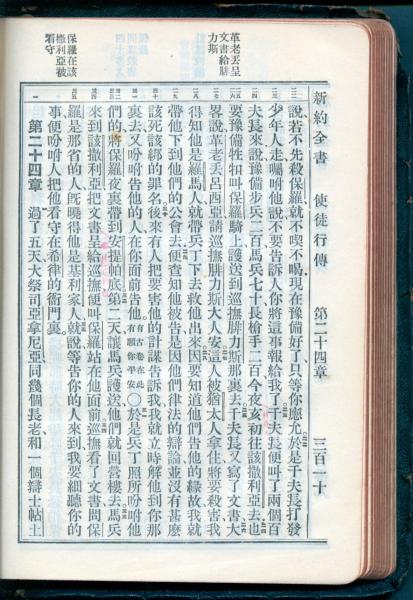 新約全書　使徒行傳　第二十四章
革老丟呈
文書給腓
力斯
保羅在該
撒利亞被
看守
說若不先殺保羅就不喫不喝現在豫備好了只等你應允於是千夫長打發
少年人走囑咐他說不要告訴人你將這事報給我了千夫長便叫了兩個百
夫長來說豫備步兵二百馬兵七十長槍手二百今夜亥初往該撒利亞去也
要豫備牲口叫保羅騎上護送到巡撫腓力斯那裏去千夫長又寫了文書大
畧說革老丟呂西亞請巡撫腓力斯大人安這人被猶太人拿住將要殺害我
得知他是羅馬人就帶兵丁下去救他出來因要知道他們告他的緣故我就
帶他下到他們的公會去便查知他被告是因他們律法的辯論並沒有甚麼
該死該綁的罪名後來有人把要害他的計謀告訴我我就立時解他到你那
裏去又吩咐告他的人在你面前告他有古卷在此有願你平安○於是兵丁照所吩咐他
們的將保羅夜裏帶到安提帕底第二天讓馬兵護送他們就回營樓去馬兵
來到該撒利亞把文書呈給巡撫便叫保羅站在他面前巡撫看了文書問保
羅是那省的人旣曉得他是基利家人就說等告你的人來到我要細聽你的
事便吩咐人把他看守在希律的衙門裏
第二十四章 過了五天大祭司亞拿尼亞同幾個長老和一個辯士帖土